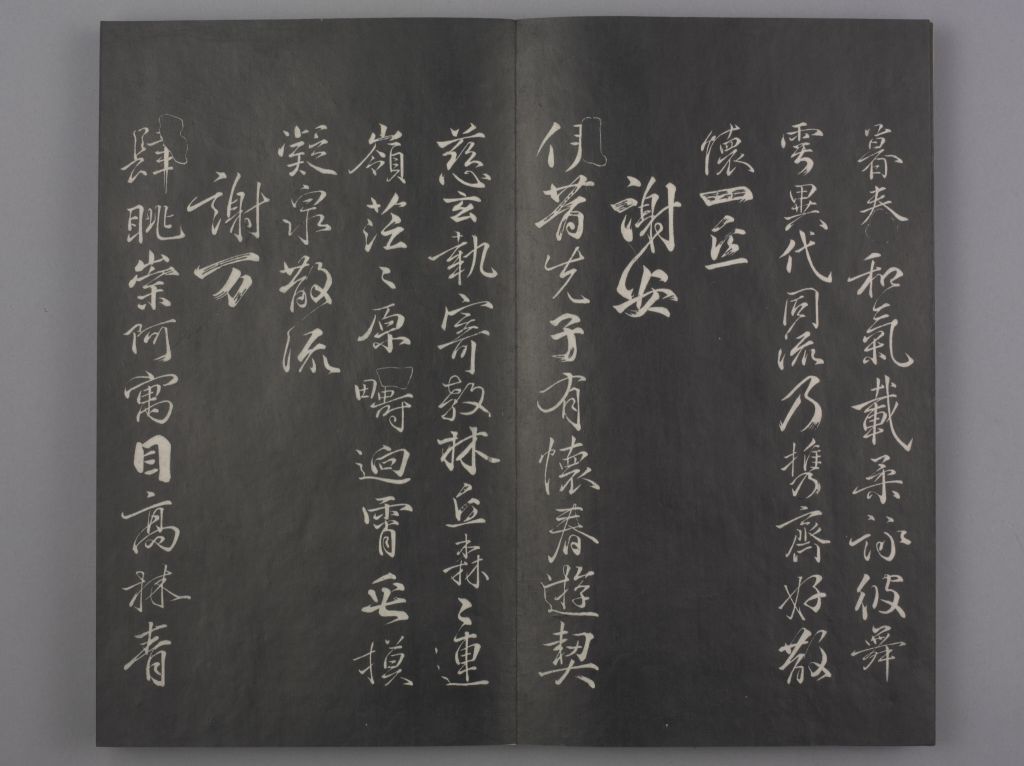 暮春和氣載柔詠彼舞
雩異代同流乃攜齊好散
懷一丘
謝安
伊昔先子有懷春遊契
慈玄執寄敖林丘森〻連
嶺茫〻原疇迥霄垂摸
凝泉散流
謝万
肆眺崇阿寓目高林青